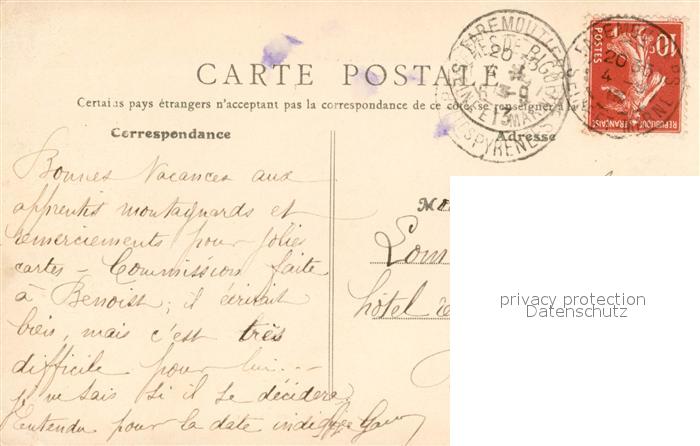 CARTE POSTALE
Certains pays étrangers n'acceptent pas la correspondance de ce côté, se renseigner à la
Correspondance
Adresse
FAREMOUTIERS
20
SEINE-ET-MARNE
13
PYRENEES
10
POSTES
REPUBLIQUE FRANÇAISE
Bonnes Vacances aux
apprentis montagnards et
remerciements pour jolies
cartes - Commission faite
à Benoist; il écrirait
bien, mais c'est très
difficile pour lui...
je ne sais si il se décidera
Entendu pour la date indiquée
hôtel
privacy protection
Datenschutz